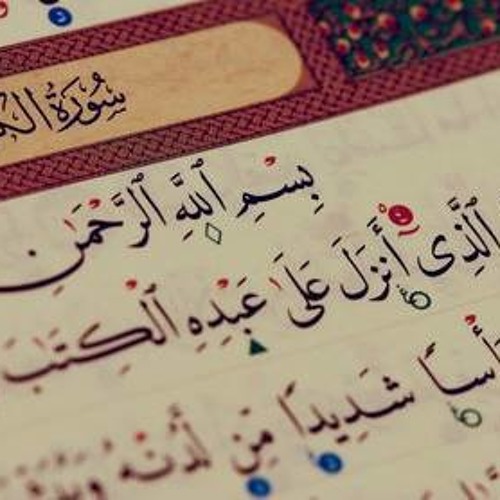 سُورَةُ
بِسْمِ ٱللَّهِ ٱلرَّحْمَٰنِ
ٱلَّذِىٓ أَنزَلَ عَلَىٰ عَبْدِهِ ٱلْكِتَٰبَ
شَدِيدًا مِّن لَّدُنْهُ